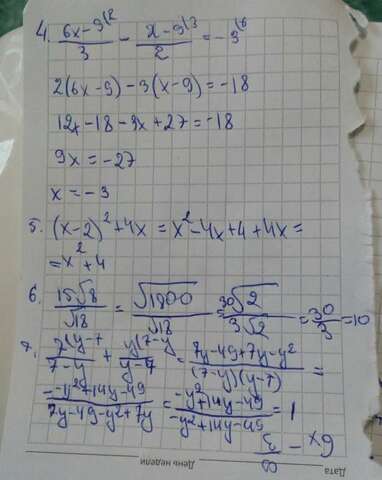 4. (6x-9)\2/3 - (x-9)\3/2 = -3\6
2(6x-9)-3(x-9)=-18
12x-18-3x+27=-18
9x=-27
x=-3
5. (x-2)²+4x=x²-4x+4+4x=
=x²+4
6. 15√8/√18 = √1800/√18 = 30√2/3√2 = 30/3 = 10
7. 7(y-7/7-y + y(7-y/y-7 = 7y-49+7y-y²/(7-y)(y-7) =
-y²+14y-49/7y-49-y²+7y = -y²+14y-49/-y²+14y-49 = 1
6x-3/8
День недели
Дата